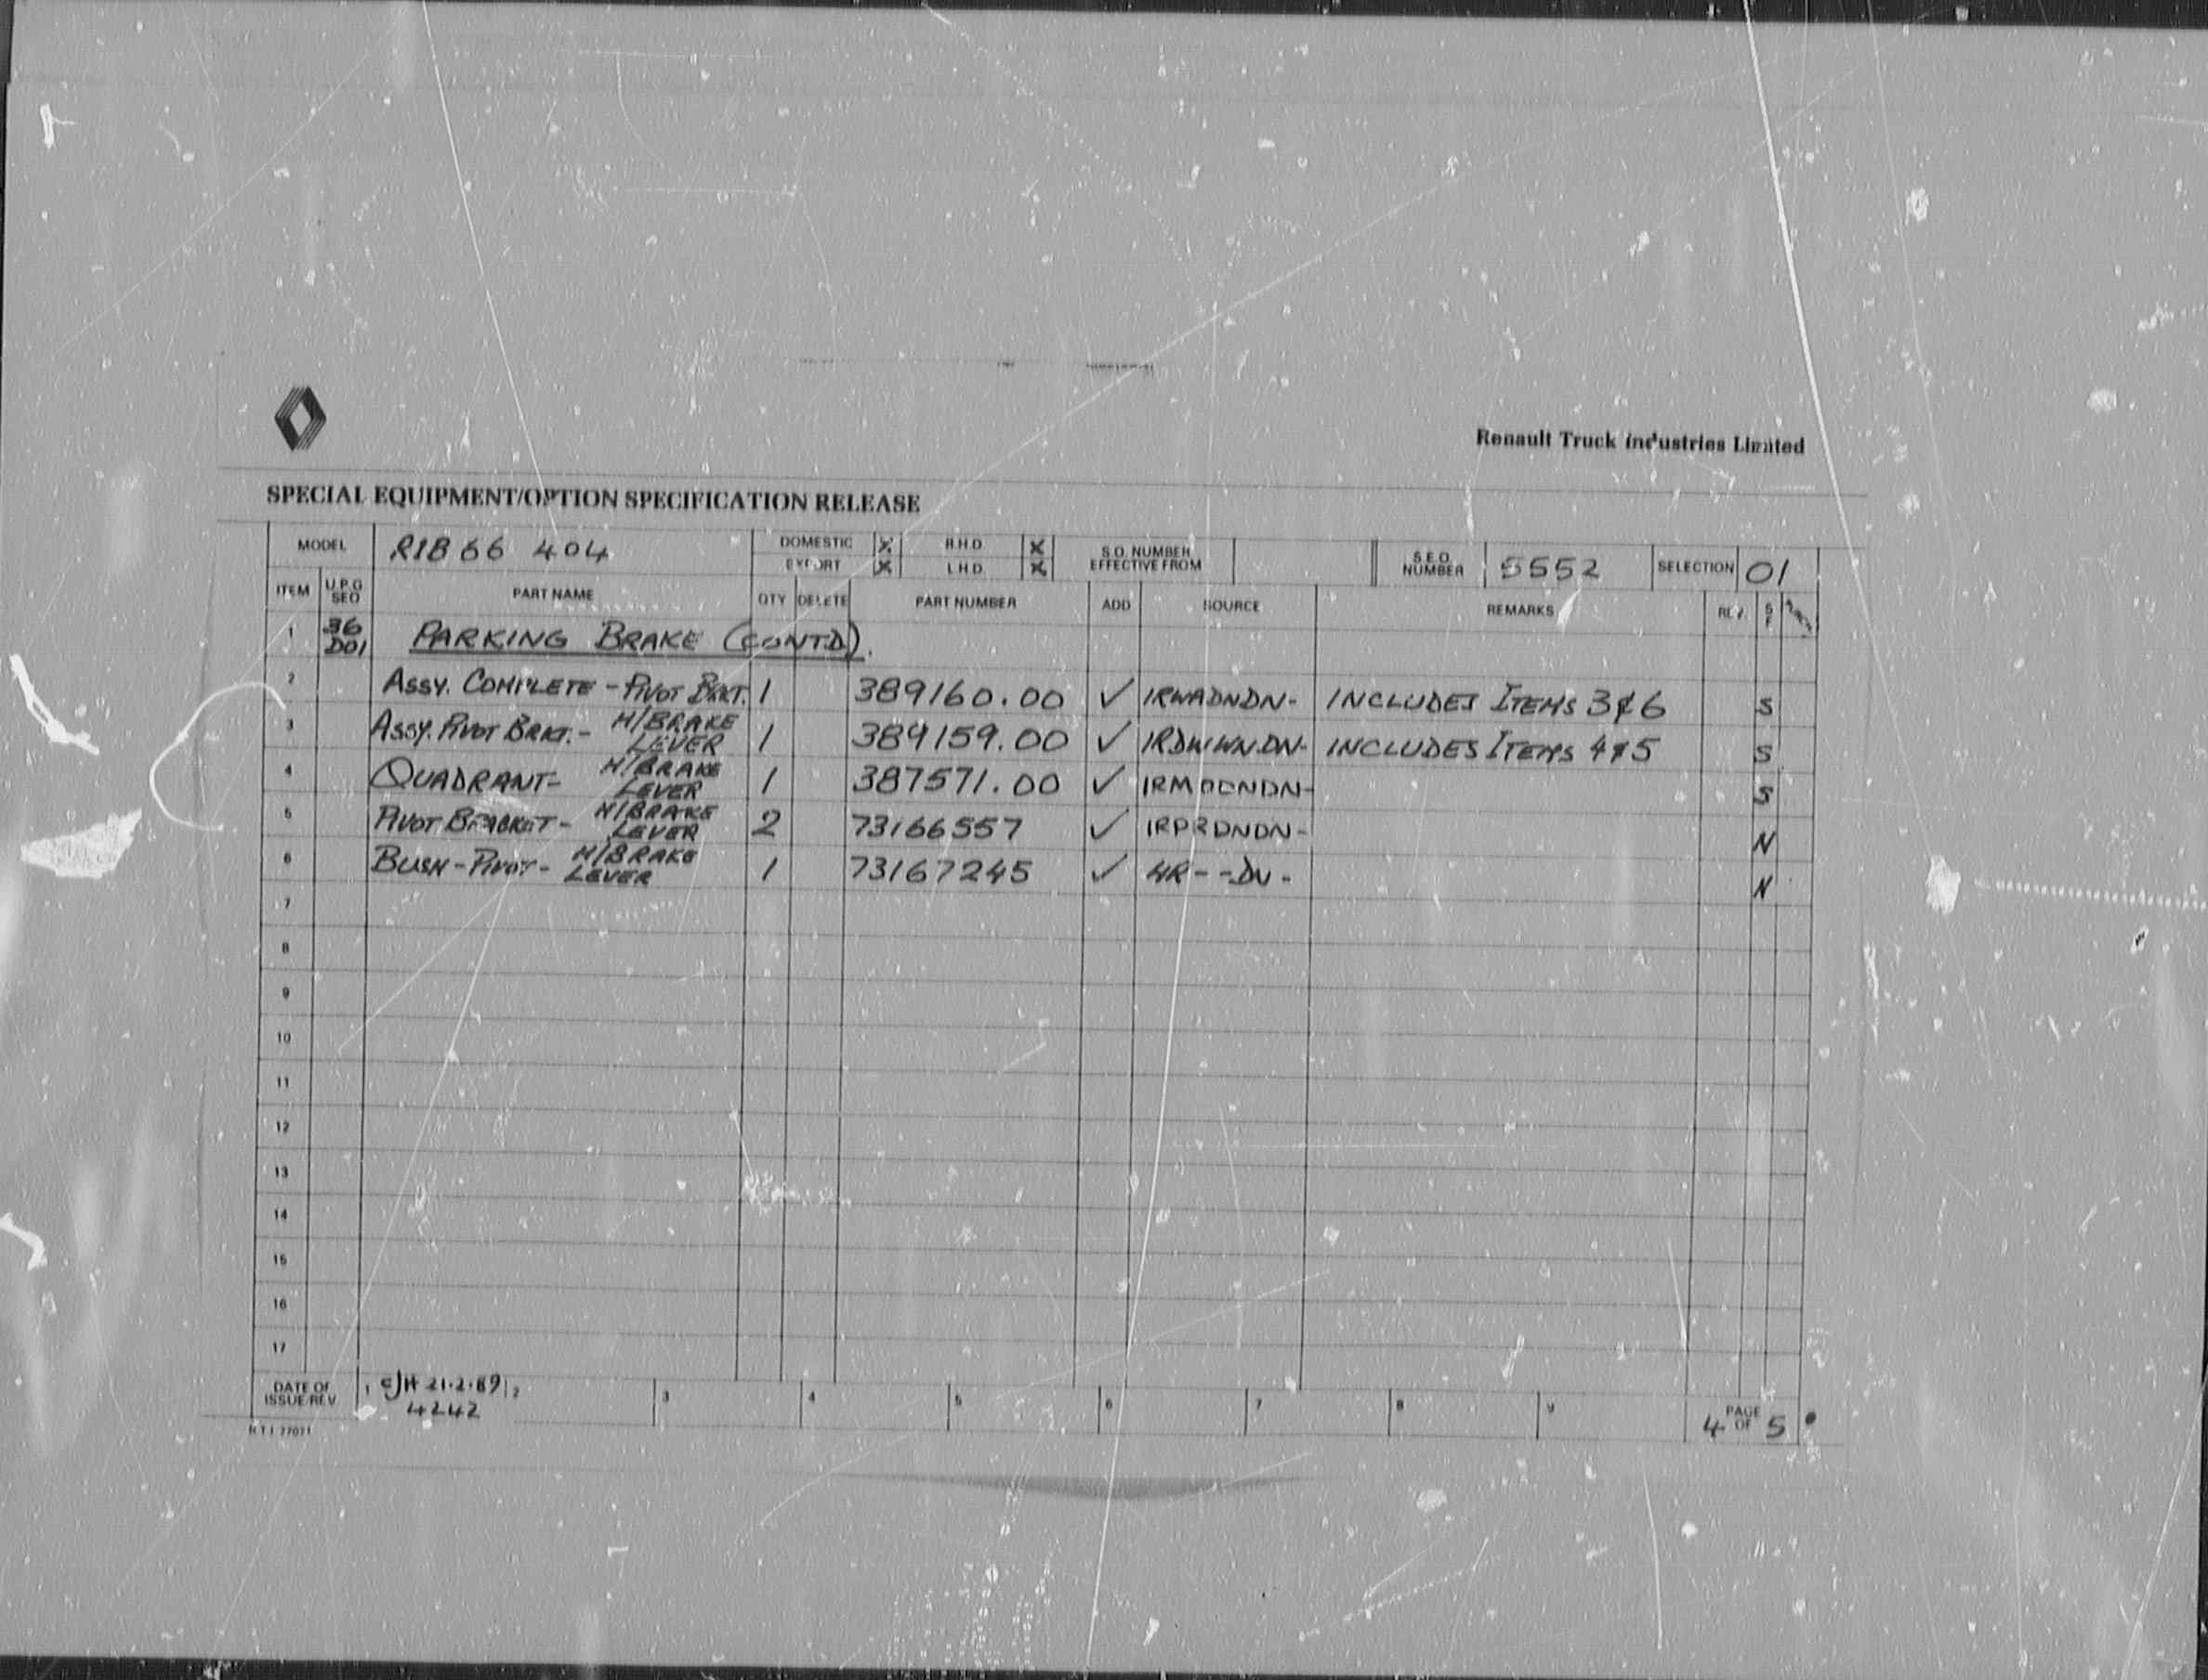 Renault Truck Industries Limited
SPECIAL EQUIPMENT/OPTION SPECIFICATION RELEASE
MODEL R1B66 404 DOMESTIC X R.H.D. X S.O. NUMBER EFFECTIVE FROM S.E.O. NUMBER 5552 SELECTION 01
EXPORT X L.H.D. X
ITEM U.P.G SEQ PART NAME QTY DELETE PART NUMBER ADD SOURCE REMARKS REV.
1 36 D01 PARKING BRAKE (CONTD).
2 ASSY. COMPLETE - PIVOT BRKT. 1 389160.00 ✓ IRWADNDN- INCLUDES ITEMS 3 & 6 S
3 ASSY. PIVOT BRKT. - H/BRAKE LEVER 1 389159.00 ✓ INCLUDES ITEMS 4 & 5 S
4 QUADRANT - H/BRAKE LEVER 1 387571.00 ✓ S
5 PIVOT BRACKET - H/BRAKE LEVER 2 73166557 ✓ IRPRDNDN- N
6 BUSH - PIVOT - H/BRAKE LEVER 1 73167245 ✓ 4R--DN- N
7
8
9
10
11
12
13
14
15
16
17
DATE OF ISSUE/REV 1 CJH 21.2.89 2 3 4 5 6 7 8 9 PAGE 4 OF 5
4242
R.T.I. 77071